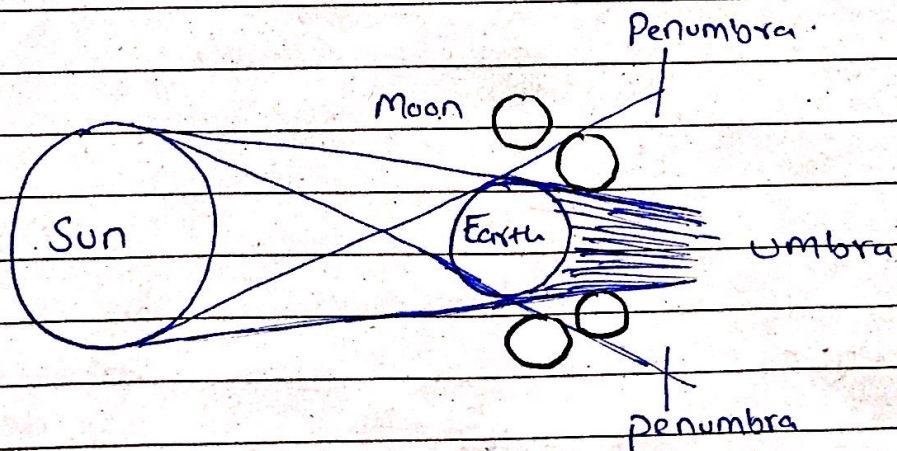 Penumbra.
Moon
Sun
Earth
umbra
penumbra